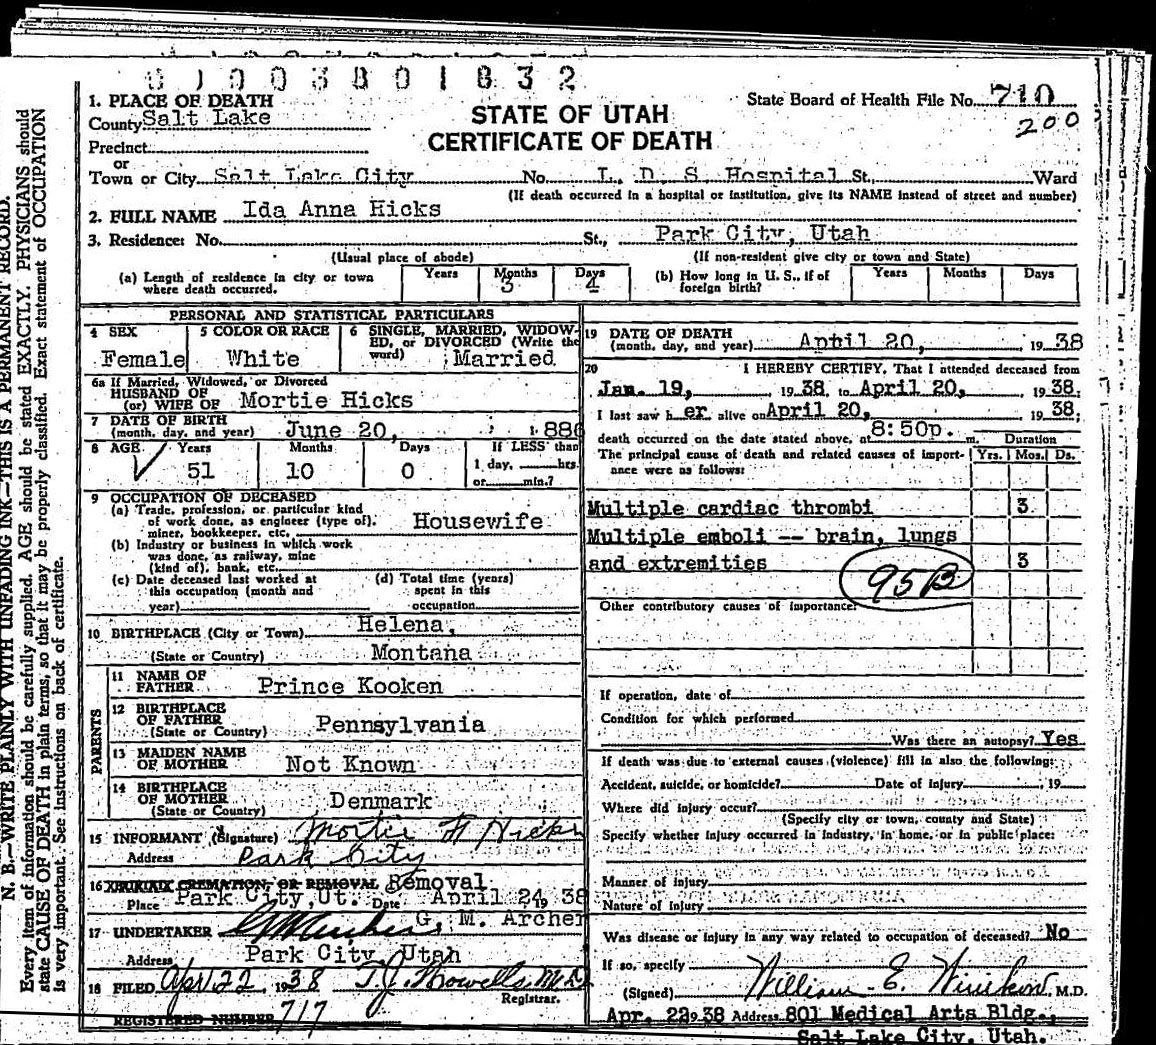 01003801832
1. PLACE OF DEATH
County Salt Lake
Precinct
or
Town or City Salt Lake City No. L. D. S. Hospital St., Ward
(If death occurred in a hospital or institution, give its NAME instead of street and number)
STATE OF UTAH
CERTIFICATE OF DEATH
State Board of Health File No. 710
200
2. FULL NAME Ida Anna Hicks
3. Residence: No. St., Park City, Utah
(Usual place of abode) (If non-resident give city or town and State)
(a) Length of residence in city or town where death occurred. Years Months 3 Days 4
(b) How long in U. S., if of foreign birth? Years Months Days
PERSONAL AND STATISTICAL PARTICULARS
4 SEX Female
5 COLOR OR RACE White
6 SINGLE, MARRIED, WIDOW-
ED, or DIVORCED (Write the
word) Married
6a If Married, Widowed, or Divorced
HUSBAND OF
(or) WIFE OF Mortie Hicks
7 DATE OF BIRTH
(month, day, and year) June 20, 1886
8 AGE Years 51 Months 10 Days 0 If LESS than
1 day, hrs.
or min.?
9 OCCUPATION OF DECEASED
(a) Trade, profession, or particular kind
of work done, as engineer (type of),
miner, bookkeeper, etc. Housewife
(b) Industry or business in which work
was done, as railway, mine
(kind of), bank, etc.
(c) Date deceased last worked at
this occupation (month and
year)
(d) Total time (years)
spent in this
occupation
10 BIRTHPLACE (City or Town) Helena,
(State or Country) Montana
PARENTS
11 NAME OF
FATHER Prince Kooken
12 BIRTHPLACE
OF FATHER
(State or Country) Pennsylvania
13 MAIDEN NAME
OF MOTHER Not Known
14 BIRTHPLACE
OF MOTHER
(State or Country) Denmark
15 INFORMANT (Signature) Mortie H Hicks
Address Park City
16 CREMATION, OR REMOVAL Removal
Place Park City, Ut. Date April 24 19 38
17 UNDERTAKER G. M. Archer
Address Park City, Utah
18 FILED Apr 22 1938 T. J. Howells M.D.
Registrar.
REGISTERED NUMBER 717
19 DATE OF DEATH
(month, day, and year) April 20, 19 38
20 I HEREBY CERTIFY, That I attended deceased from
Jan. 19, 19 38, to April 20, 19 38.
I last saw h er alive on April 20, 19 38;
death occurred on the date stated above, at 8:50p. m.
Duration
The principal cause of death and related causes of import-
ance were as follows:
Yrs. Mos. Ds.
Multiple cardiac thrombi 3
Multiple emboli -- brain, lungs
and extremities 3
95B
Other contributory causes of importance:
If operation, date of
Condition for which performed
Was there an autopsy? Yes
If death was due to external causes (violence) fill in also the following:
Accident, suicide, or homicide? Date of injury , 19
Where did injury occur?
(Specify city or town, county and State)
Specify whether injury occurred in industry, in home, or in public place:
Manner of injury
Nature of injury
Was disease or injury in any way related to occupation of deceased? No
If so, specify
(Signed) William E. M.D.
Apr. 22 19 38 Address 801 Medical Arts Bldg.,
Salt Lake City, Utah.
N. B.—WRITE PLAINLY WITH UNFADING INK—THIS IS A PERMANENT RECORD.
Every item of information should be carefully supplied. AGE should be stated EXACTLY. PHYSICIANS should
state CAUSE OF DEATH in plain terms, so that it may be properly classified. Exact statement of OCCUPATION
is very important. See instructions on back of certificate.